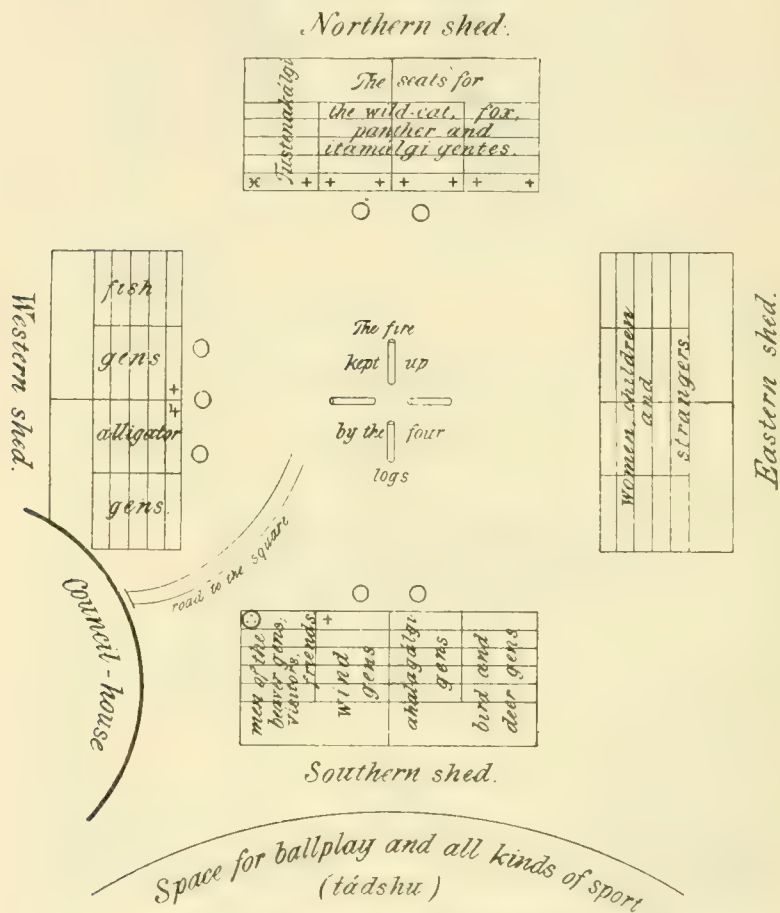 Northern shed.
Tustenakálgi
The seats for
the wild-cat, fox,
panther and
itamálgi gentes.
Western shed.
fish
gens
alligator
gens.
The fire
kept up
by the four
logs
Women, children
and
strangers.
Eastern shed.
road to the square
Council-house
men of the
beaver gens;
visitors,
friends
wind
gens
ahalagálgi
gens
bird and
deer gens
Southern shed.
Space for ballplay and all kinds of sport
(tádshu)